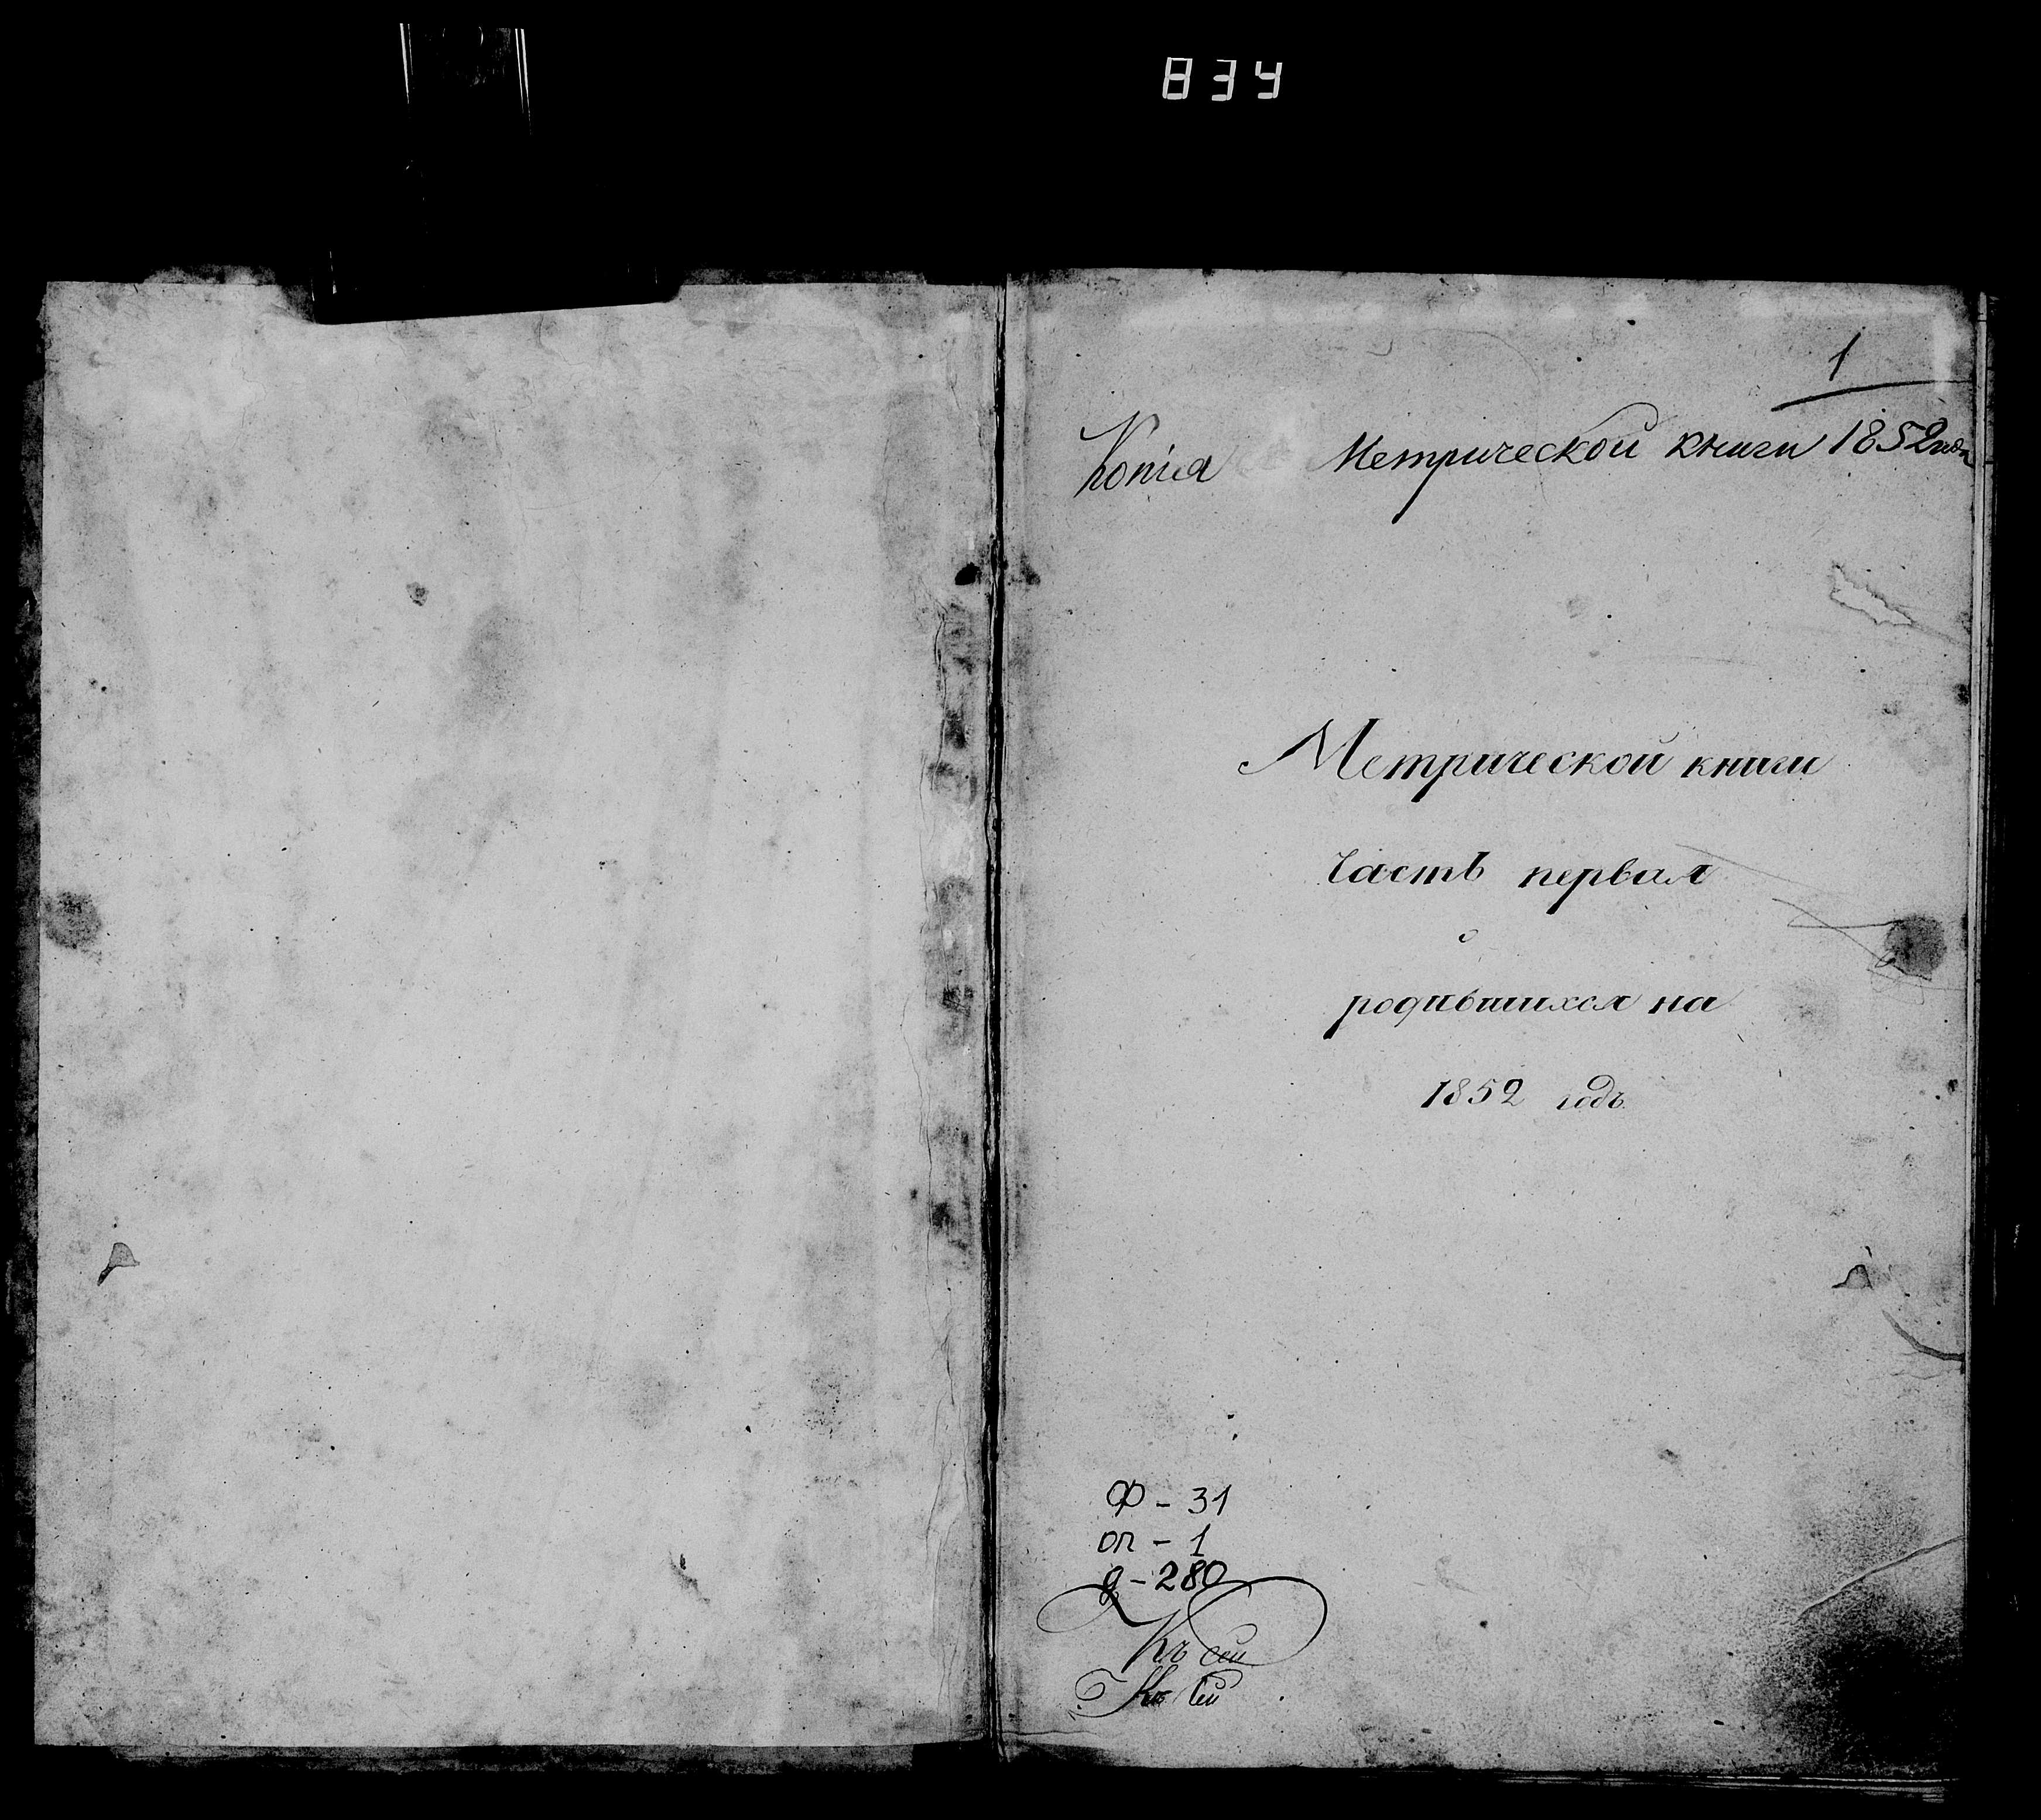 834
1
Копія Метрической книги 1852 года
Метрической книги
часть первая
о
родившихся на
1852 годъ.
Ф - 31
оп - 1
д - 280
Къ сей
Къ сей